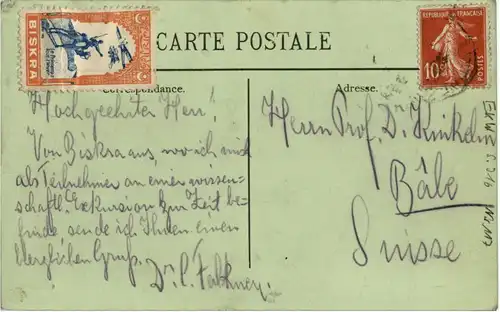 BISKRA
CARTE POSTALE
REPUBLIQUE FRANÇAISE
10c
POSTES
Correspondance.
Adresse.
Hochgeehrter Herr!
Von Biskra aus, wo ich mich
als Teilnehmer an einer wissen-
schaftl. Exkursion zur Zeit be-
finde sende ich Ihnen einen
herzlichen Gruß.
Dr.
Herrn Prof. Dr Kinkelin
Bâle
Suisse